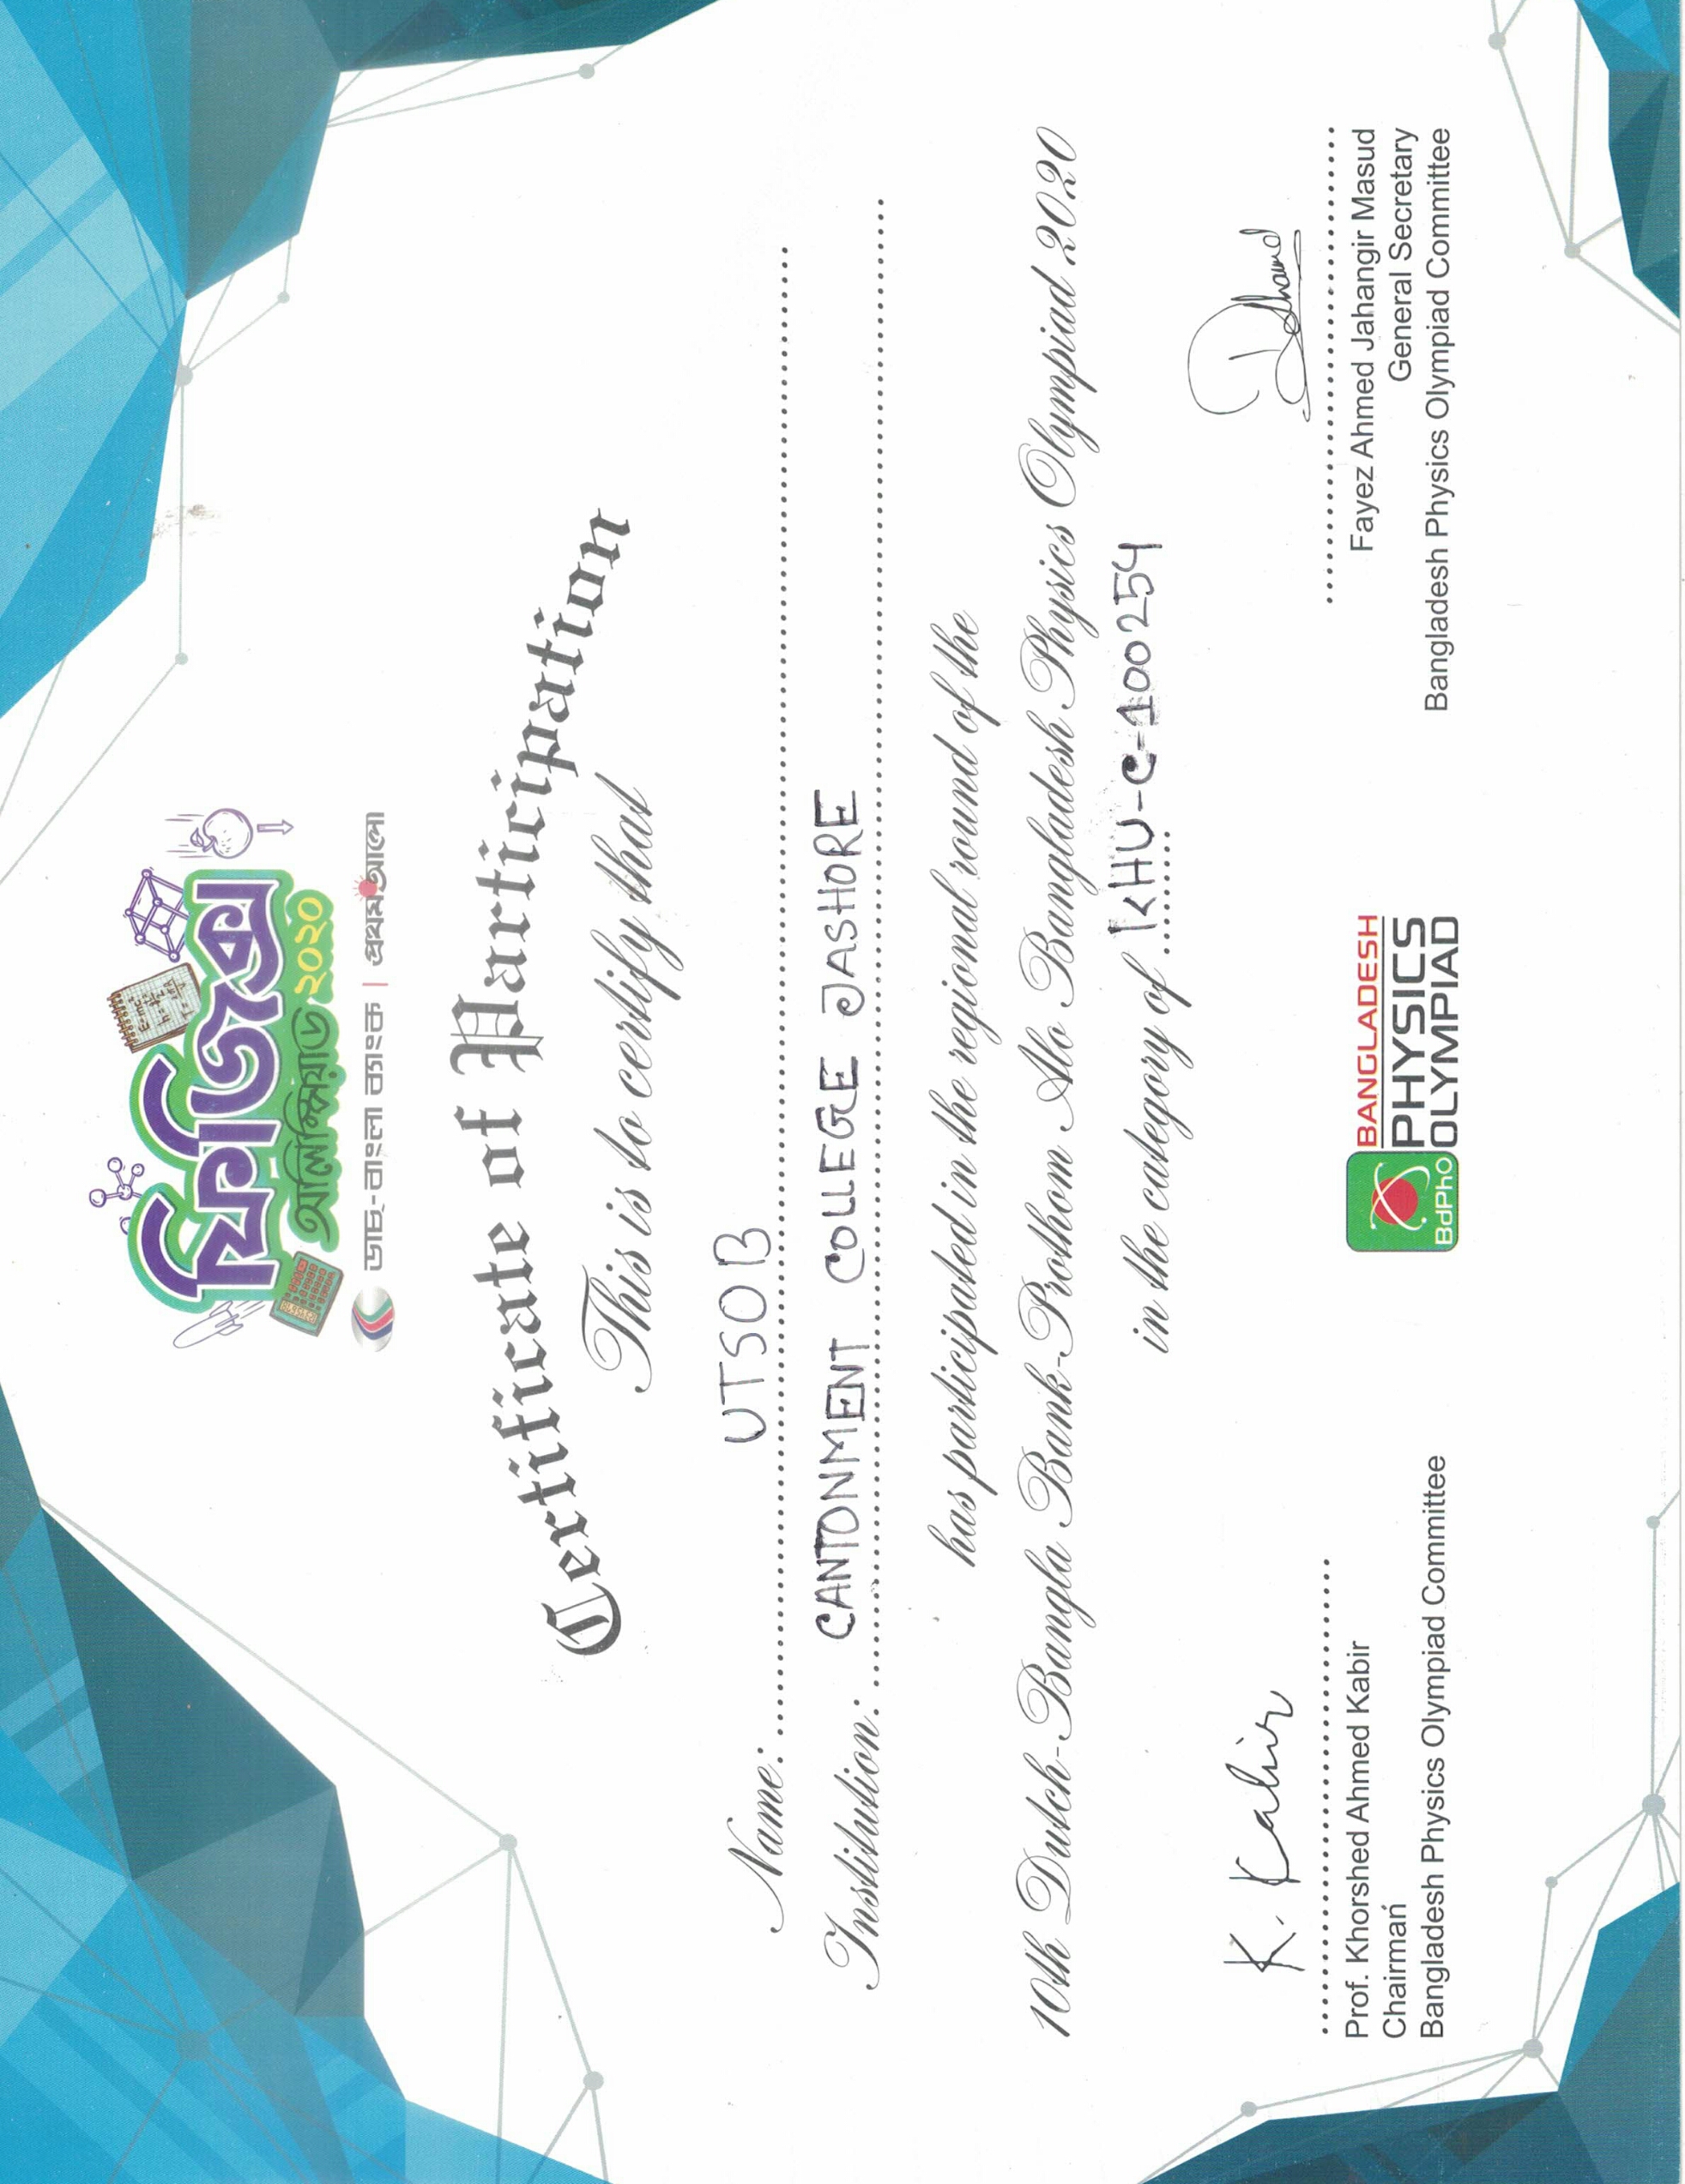 E=mc²
ফিজিক্স
অলিম্পিয়াড ২০২০
ডাচ্-বাংলা ব্যাংক | প্রথম আলো
Certificate of Participation
This is to certify that
Name: UTSOB
Institution: CANTONMENT COLLEGE JASHORE
has participated in the regional round of the
10th Dutch-Bangla Bank-Prothom Alo Bangladesh Physics Olympiad 2020
in the category of KHU-C-100254
K. Kabir
Prof. Khorshed Ahmed Kabir
Chairman
Bangladesh Physics Olympiad Committee
BdPhO
BANGLADESH
PHYSICS
OLYMPIAD
Fayez Ahmed Jahangir Masud
General Secretary
Bangladesh Physics Olympiad Committee